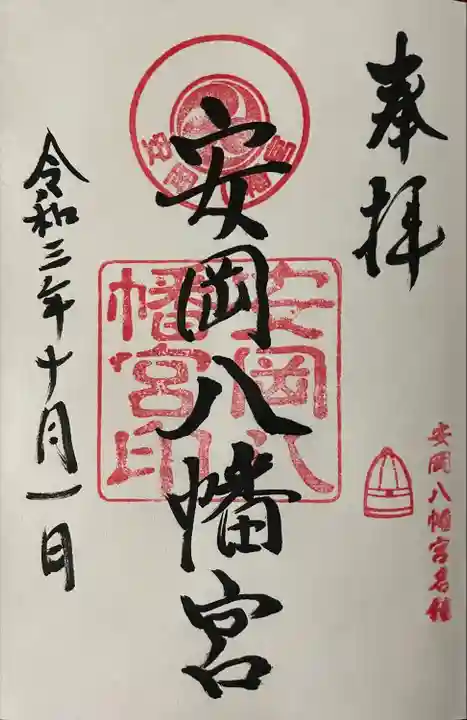 奉拝
安岡八幡宮
安岡八幡宮印
令和三年十月一日
安岡八幡宮名